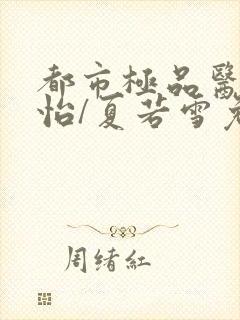 都市極品醫
怡/夏若雪
周緒紅